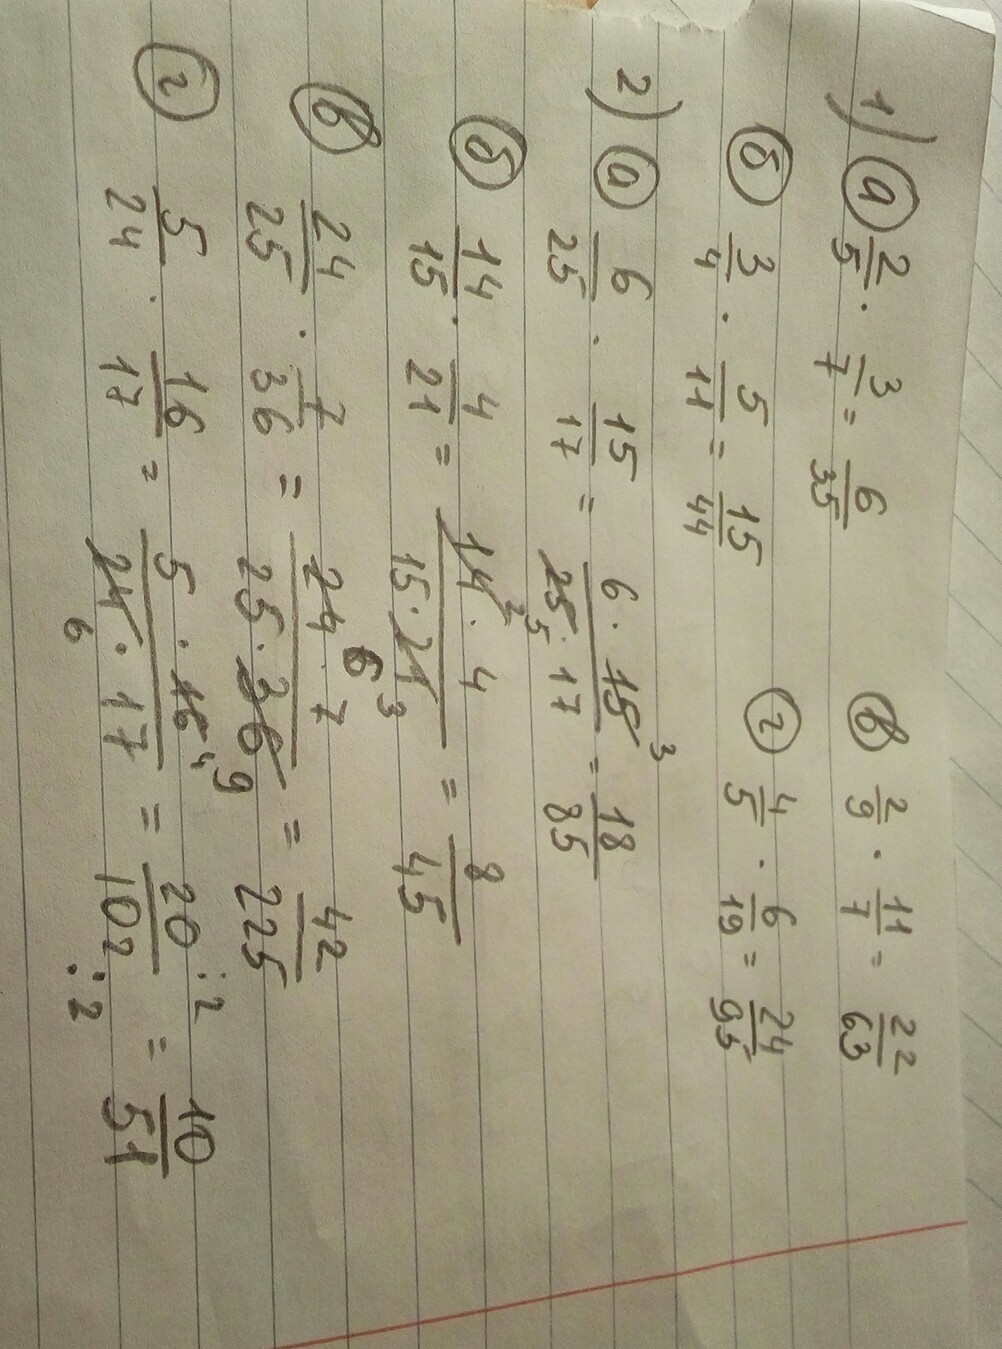 1) а 2/5 · 3/7 = 6/35 в 2/9 · 11/7 = 22/63
б 3/4 · 5/11 = 15/44 г 4/5 · 6/19 = 24/95
2) а 6/25 · 15/17 = 6 · 15 3/25 5 · 17 = 18/85
б 14/15 · 4/21 = 14 2 · 4/15 · 21 3 = 8/45
в 24/25 · 7/36 = 24 6 · 7/25 · 36 9 = 42/225
г 5/24 · 16/17 = 5 · 16 4/24 6 · 17 = 20 :2/102 :2 = 10/51